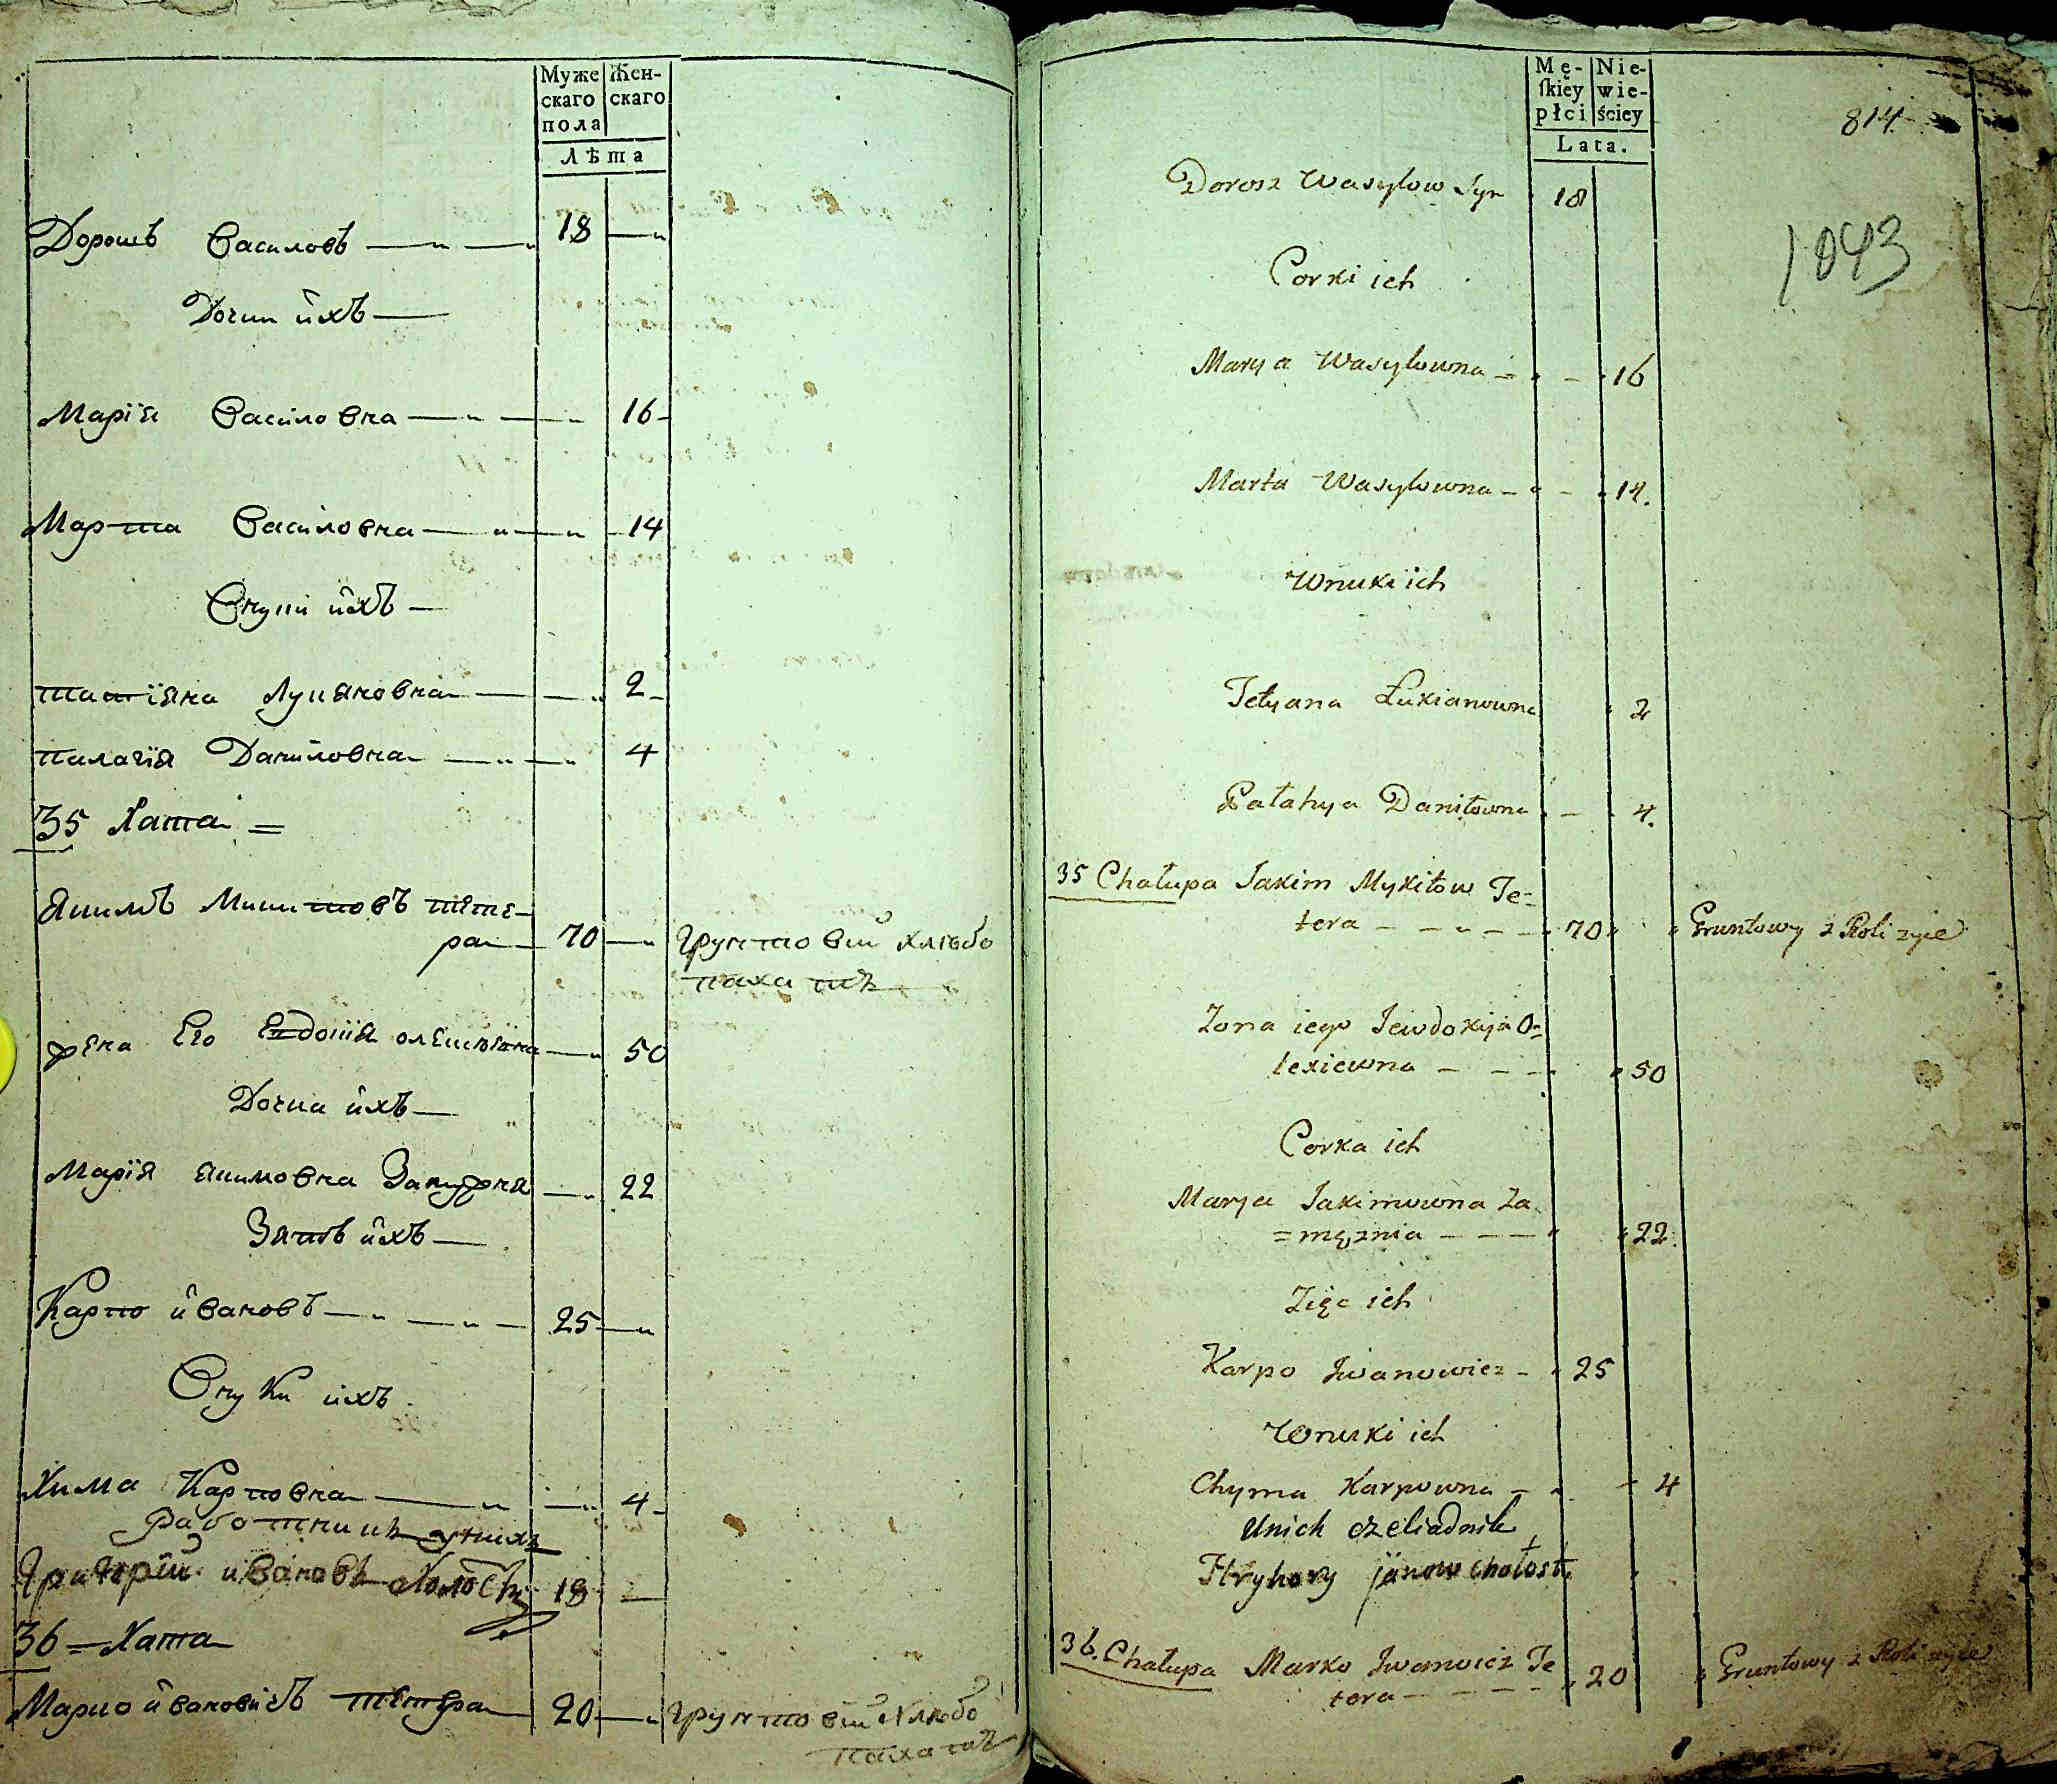 Муже
скаго
пола
Жен-
скаго
Лѣта
Дорошъ Василовъ 18
Дочки ихъ
Марія Василовна 16
Марта Василовна 14
Внуки ихъ
татіяна Лукяновна 2
палагія Даниловна 4
35 Хата =
Якимъ Микитовъ тете-
ра 70 Грунтовий хлѣбо
пахатъ
жена Его Евдокія олексѣвна 50
Дочка ихъ
Марія якимовна Замужня 22
Зять ихъ
Карпо ивановъ 25
Внуки ихъ
Хима Карповна 4
работникъ у них
Григорій ивановъ холостъ 18
36 = Хата
Марко ивановичъ тетера 20 Грунтовий хлѣбо
пахатъ
Mę-
skiey
płci
Nie-
wie-
ściey
Lata.
814
1043
Dorosz Wasylow Syn 18
Corki ich
Marya Wasylowna 16
Marta Wasylowna 14.
Wnuki ich
Tetyana Łukianowna 2
Pałahya Daniłowna 4.
35 Chałupa Jakim Mykitow Te=
tera 70 Gruntowy z Roli zyie
Zona iego Jewdokija O=
lexiewna 50
Corka ich
Marya Jakimowna Za
=męznia 22.
Zięc ich
Karpo Iwanowicz 25
Wnuki ich
Chyma Karpowna 4
Unich czeliadnik
Hryhory janow chołost
36. Chałupa Marko Iwanowicz Te
tera 20 Gruntowy z Roli zyie